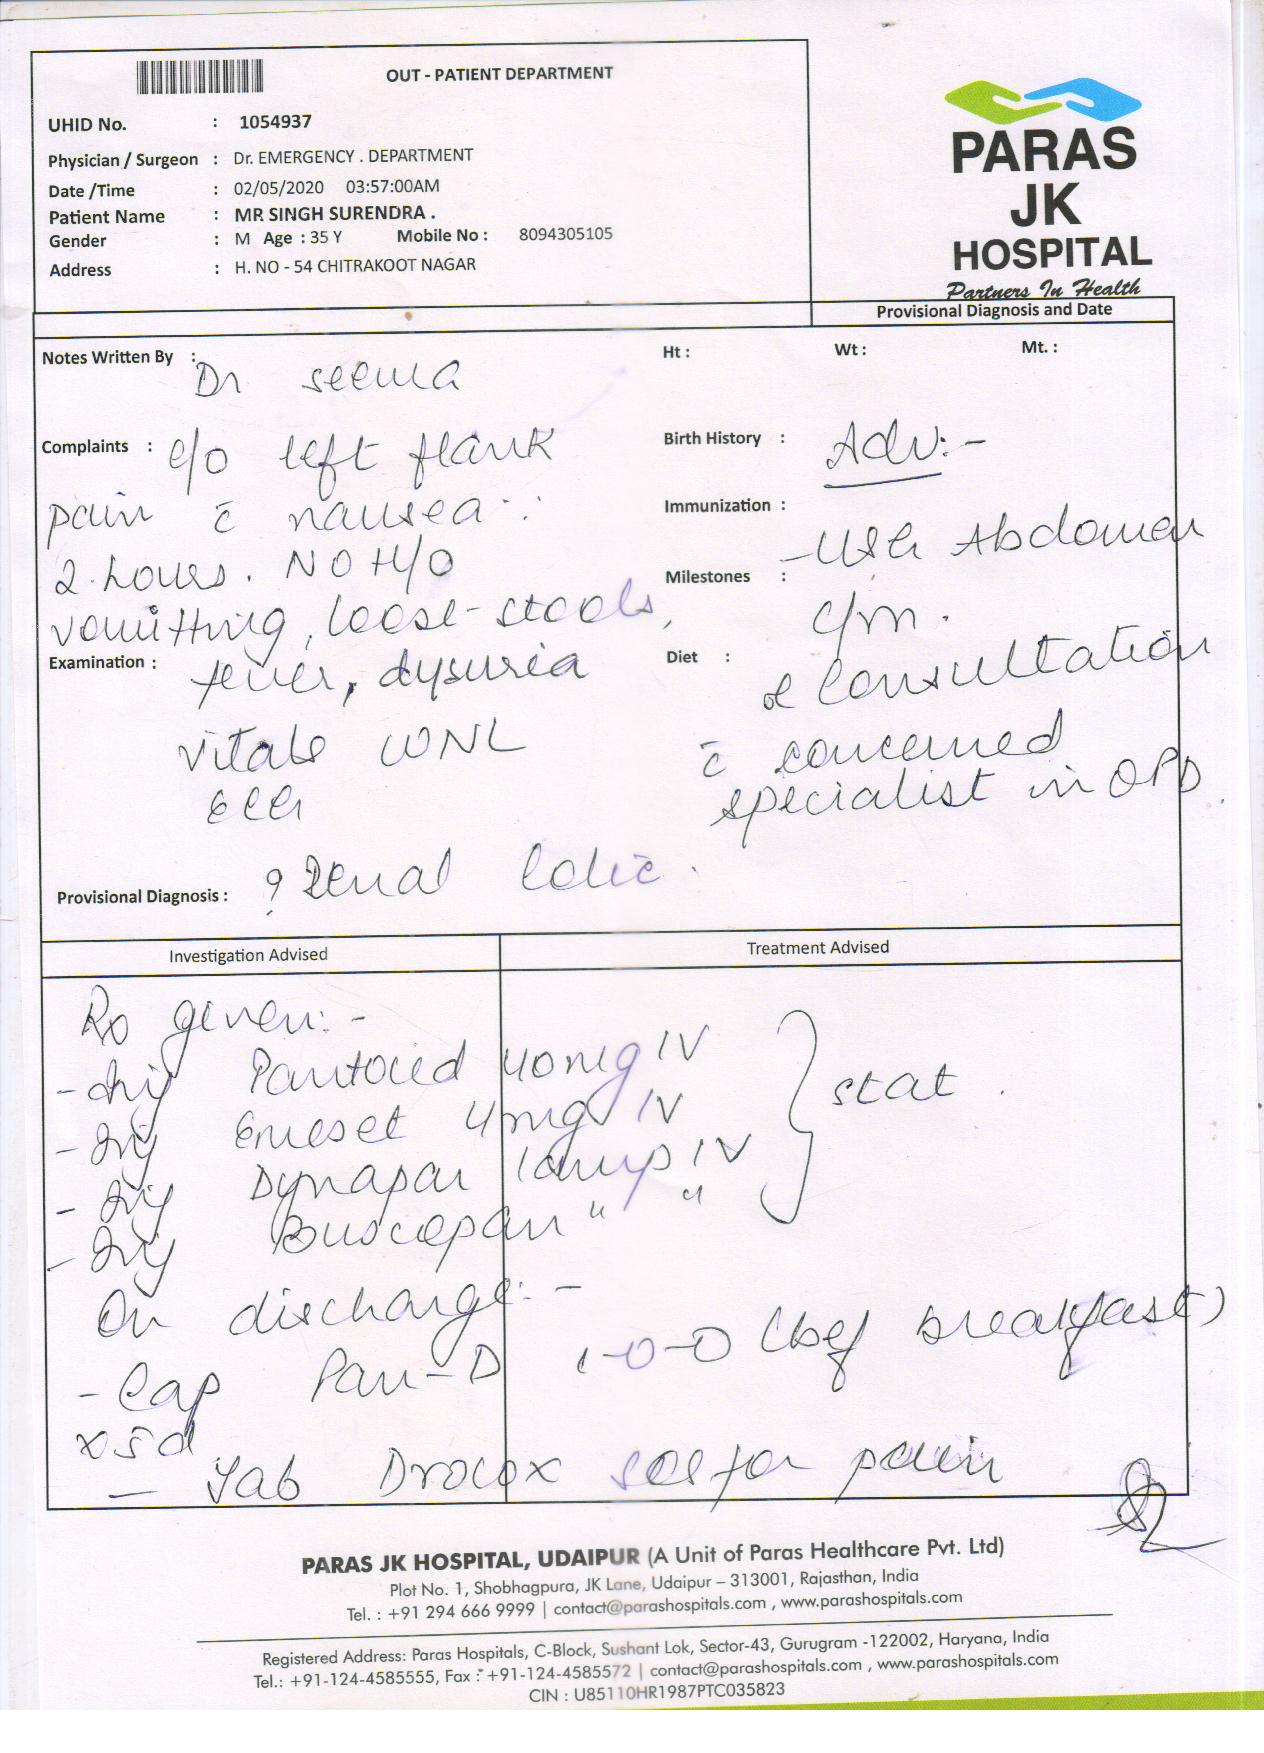 OUT - PATIENT DEPARTMENT
UHID No. : 1054937
Physician / Surgeon : Dr. EMERGENCY . DEPARTMENT
Date /Time : 02/05/2020 03:57:00AM
Patient Name : MR SINGH SURENDRA .
Gender : M Age : 35 Y Mobile No : 8094305105
Address : H. NO - 54 CHITRAKOOT NAGAR
PARAS
JK
HOSPITAL
Partners In Health
Provisional Diagnosis and Date
Notes Written By : Dr Seema
Ht : Wt : Mt. :
Complaints : c/o left flank
pain c̄ nausea :
2 hours. NO H/O
vomitting, loose-stools,
Examination : fever, dysuria
vitals WNL
ECG
Birth History : Adv:-
Immunization :
- USG Abdomen
Milestones :
c/m.
Diet :
& Consultation
c̄ concerned
specialist in OPD.
Provisional Diagnosis : ? Renal Colic.
Investigation Advised
Treatment Advised
Rx given:-
- Inj Pantocid 40mg IV
- Inj Emeset 4mg IV
- Inj Dynapar 1amp IV
- Inj Buscopan " "
} stat.
On discharge:-
- Cap Pan-D 1-0-0 (bef breakfast)
x 5d
- Tab Drocox SOS for pain
PARAS JK HOSPITAL, UDAIPUR (A Unit of Paras Healthcare Pvt. Ltd)
Plot No. 1, Shobhagpura, JK Lane, Udaipur – 313001, Rajasthan, India
Tel. : +91 294 666 9999 | contact@parashospitals.com , www.parashospitals.com
Registered Address: Paras Hospitals, C-Block, Sushant Lok, Sector-43, Gurugram -122002, Haryana, India
Tel.: +91-124-4585555, Fax : +91-124-4585572 | contact@parashospitals.com , www.parashospitals.com
CIN : U85110HR1987PTC035823